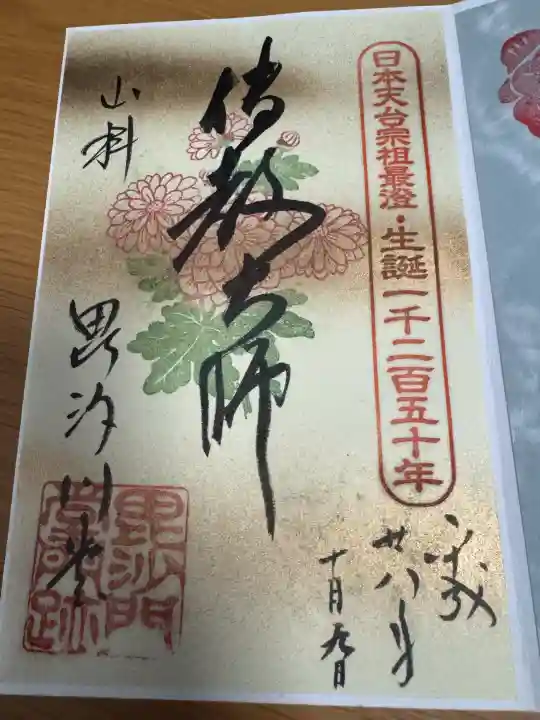 日本天台宗祖最澄・生誕一千二百五十年
平成
廿八年
十月九日
傳教大師
山科
毘沙門堂
毘沙門
堂跡